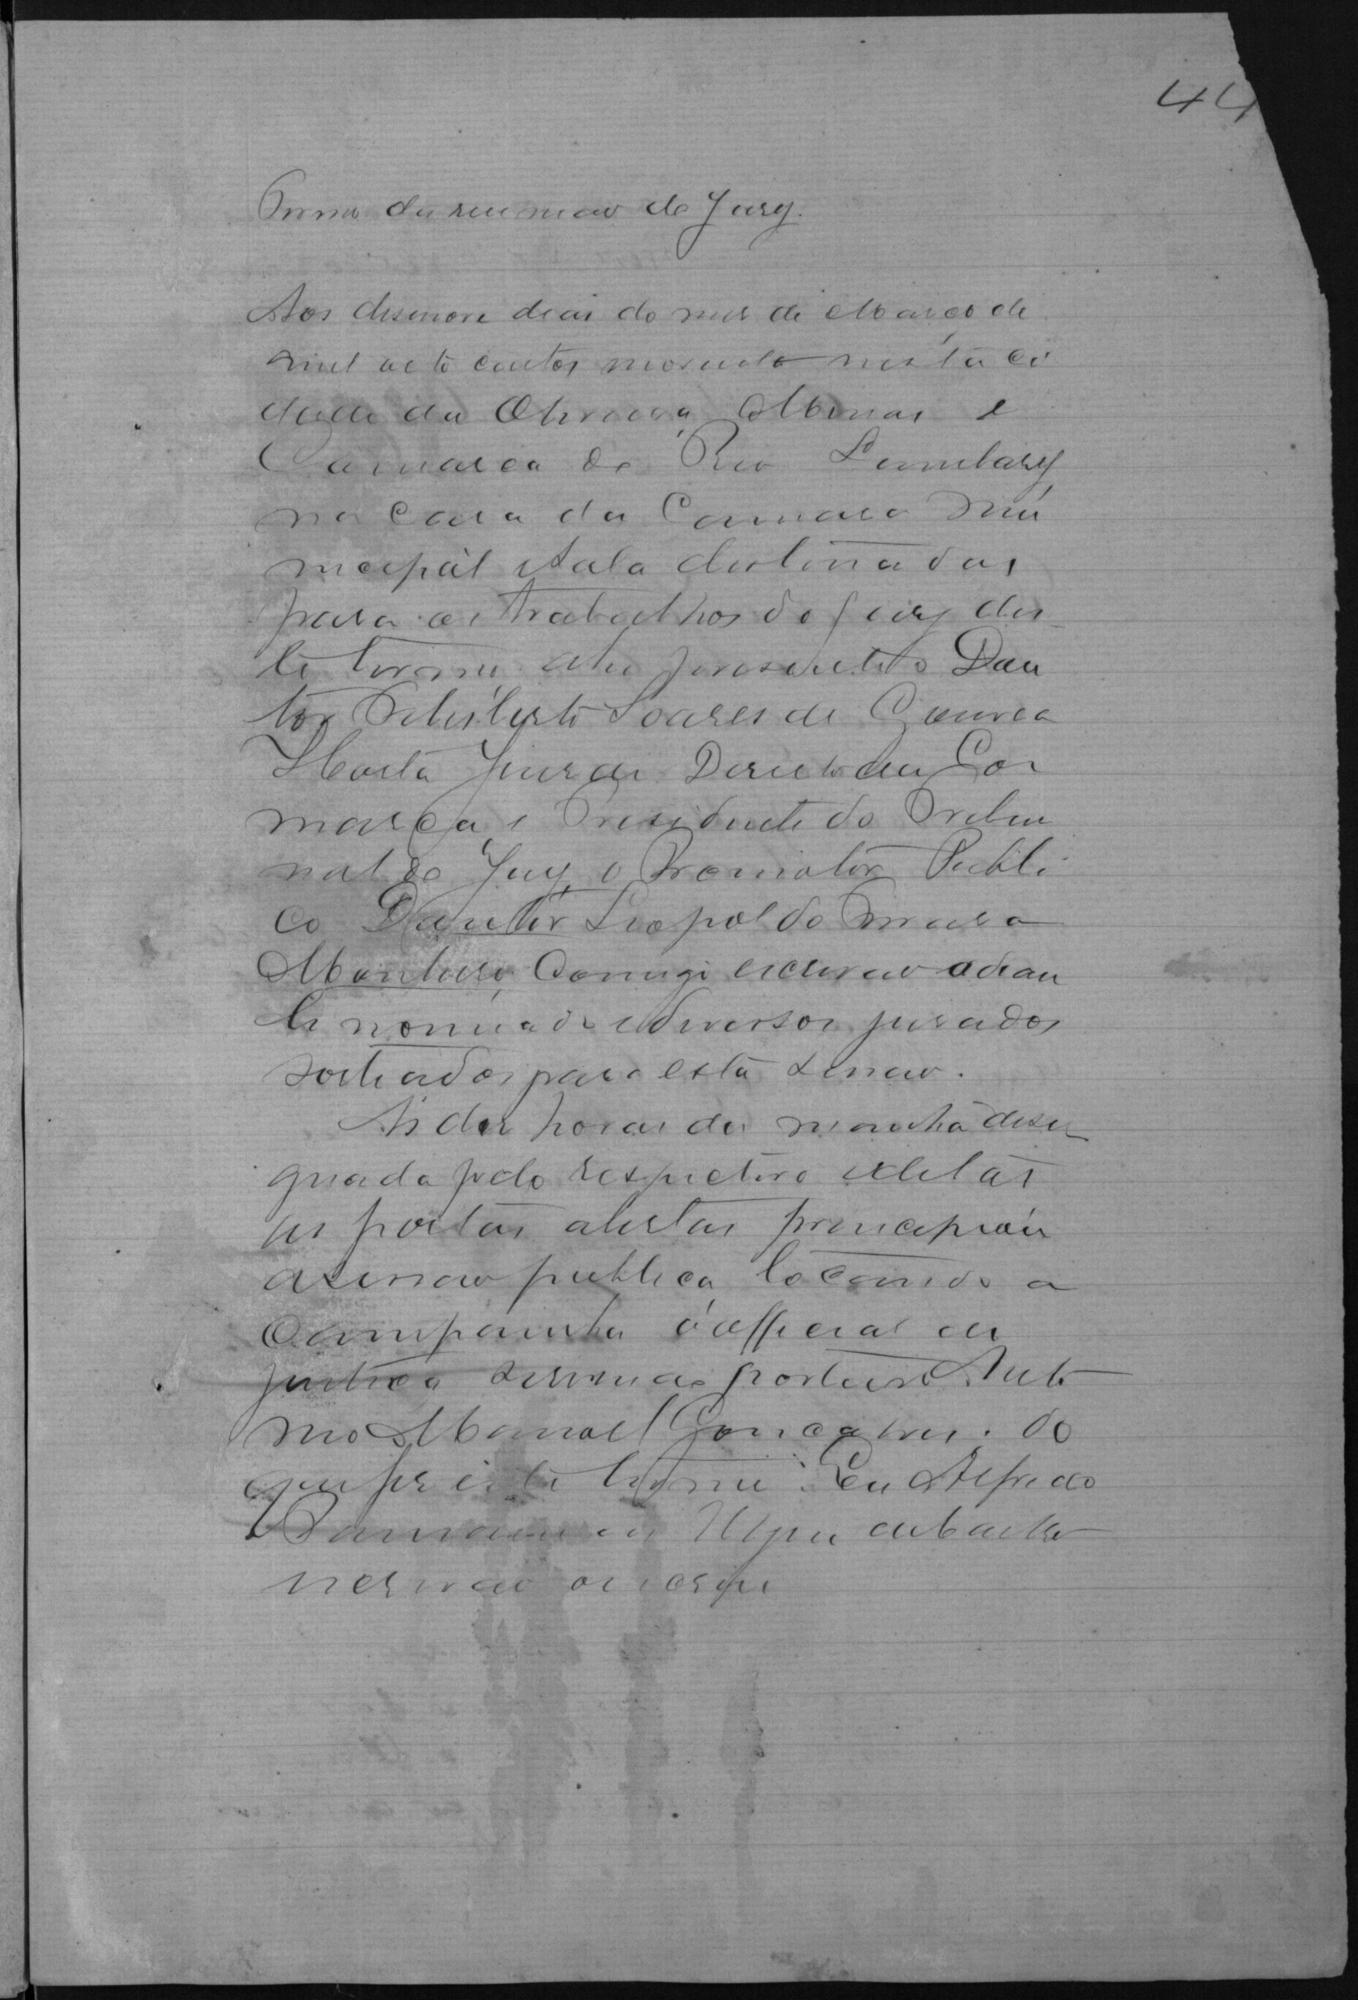 44
Termo da reuniao do Jury.
Aos desenove dias do mes de Março de
mil oito centos noventa nesta ci
dade da Oliveira, Minas e
Comarca do Rio Lambary
na casa da Camara Mu
nicipal e sala destinadas
para os trabalhos do Jury des
te termo ahi presente o Dou
tor Feliberto Soares de Gouvea
Horta Juiz de Direito da Co
marca, e Presidente do Tribu
nal do Jury, o Promotor Publi
co Doutor Leopoldo
Monteiro, Comigo escrivao adian
te nomiado e diversos jurados
sorteados para esta sessao.
As dez horas da manhã desi
gnada pelo respectivo edital
as portas abertas principiou
a sessao publica, tocando a
Campainha o official de
justiça servindo porteiro Anto
nio Manoel Gonçalves. do
que fis este termo. Eu Alfredo
escrivao o escrevi